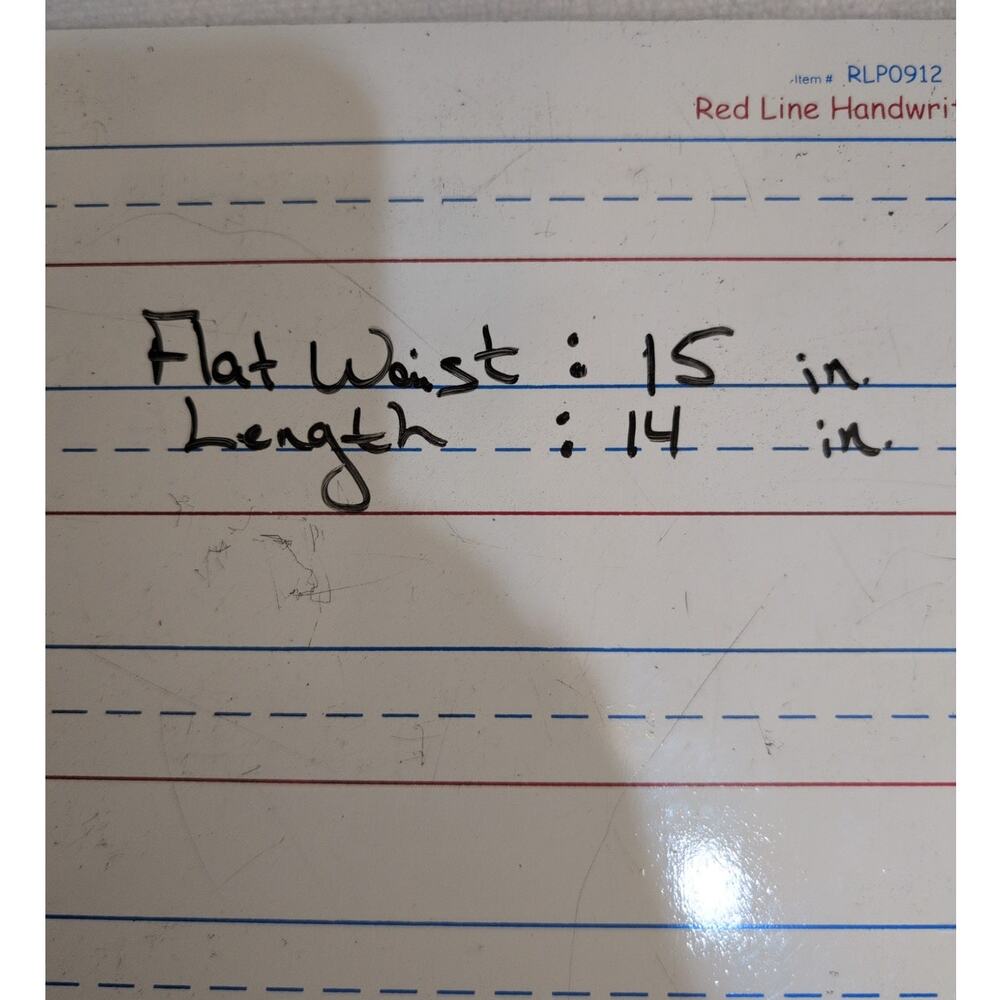 Item # RLP0912
Red Line Handwrit
Flat Waist : 15 in.
Length : 14 in.